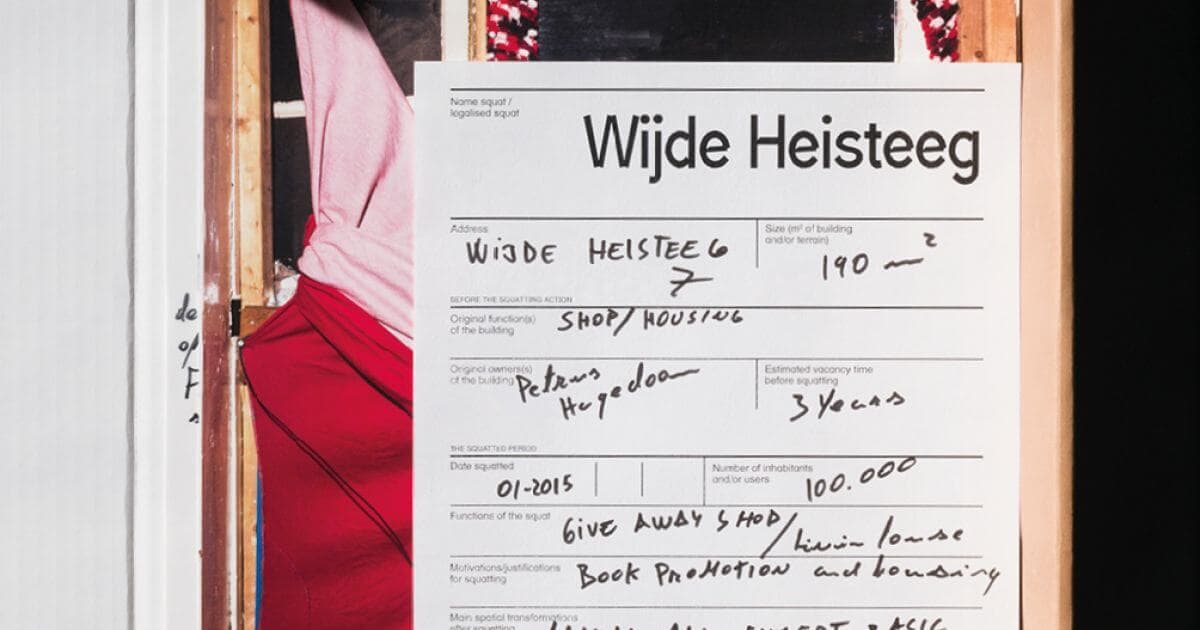 Name squat /
legalised squat
Wijde Heisteeg
Address
WIJDE HEISTEEG
7
Size (m² of building
and/or terrain)
190 m²
BEFORE THE SQUATTING ACTION
Original function(s)
of the building
SHOP/HOUSING
Original owners(s)
of the building
Petrus
Hagedoorn
Estimated vacancy time
before squatting
3 Years
THE SQUATTED PERIOD
Date squatted
01-2015
Number of inhabitants
and/or users
100.000
Functions of the squat
GIVE AWAY SHOP/
Motivations/justifications
for squatting
BOOK PROMOTION and housing
Main spatial transformations
after squatting
de
op
F
s